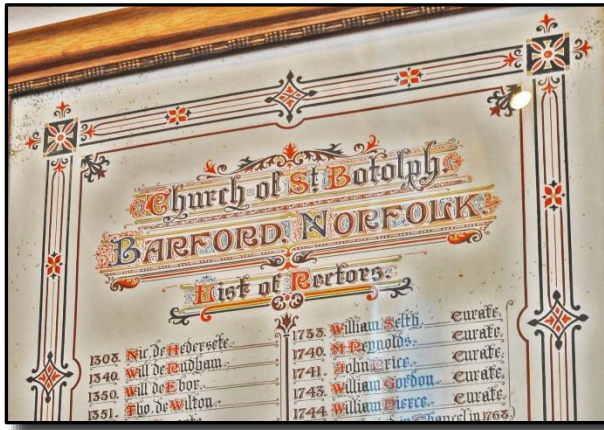 Church of St Botolph.
BARFORD. NORFOLK.
List of Rectors.
1303. Nic. de Hedersete.
1340. Will de Rudham.
1350. Will de Ebor.
1351. Tho. de Wilton.
1733. William Selth. Curate.
1740. M Reynolds. Curate.
1741. John Price. Curate.
1743. William Gordon. Curate.
1744. William Pierce. Curate.
in Chancel in 1763